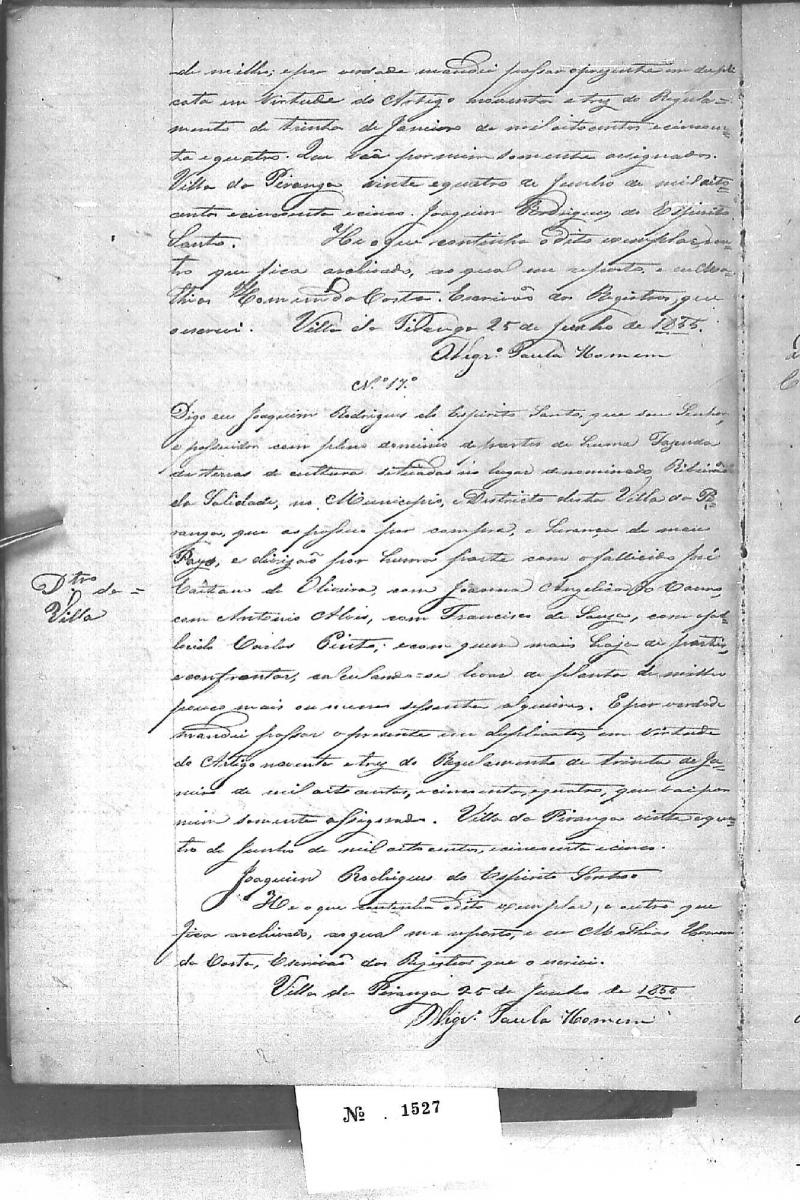 de milho; e por verdade mandei passar o prezente em dupli
cata em virtude do Artigo noventa e trez do Regula=
mento de trinta de Janeiro de mil oito centos e cincoen-
ta e quatro. Que vaõ por mim somente assignados.
Villa da Piranga vinte e quatro de Junho de mil oito
centos e cincoenta e cinco. Joaquim Rodrigues do Espirito
Santo. He o que continha o dito exemplar, e ou-
tro que fica archivado, ao qual me reporto, e eu Ma-
thias Homem da Costa. Escrivaõ dos Registros, que
o escrevi. Villa da Piranga 25 de Junho de 1855.
Paula Homem
Nº 17º
Digo eu Joaquim Rodrigues do Espirito Santo, que sou Senhor,
e possuidor com pleno dominio de partes de huma Fazenda
de terras de cultura setuadas no lugar denominado Ribeiraõ
da Salidade, no Municipio, e Districto desta Villa da Pi-
ranga, que as possuo por compra, e herança de meu
Pay, e divizaõ por huma parte com o fallicido
Caetano de Oliveira, com Joanna Angelica do
com Antonio Alves, com Francisco de Souza, com o fal-
lecido Carlos Pinto, e com quem mais haja de partir,
e confrontar, calculando-se levar de planta de milho
pouco mais ou menos sessenta alqueires. E por verdade
mandei passar o presente em duplicata, em virtude
do Artigo noventa e trez do Regulamento de trinta de Ja-
neiro de mil oito centos, e cincoenta, e quatro, que vai por
mim somente assignado. Villa da Piranga vinte e qua-
tro de Junho de mil oito centos, e cincoenta e cinco.
Joaquim Rodrigues do Espirito Santo
He o que continha o dito exemplar, e outro que
fica archivado, ao qual me reporto, e eu Mathias Homem
da Costa, Escrivaõ dos Registros que o escrevi.
Villa da Piranga 25 de Junho de 1855
Paula Homem
Dtro da=
Villa
Nº 1527